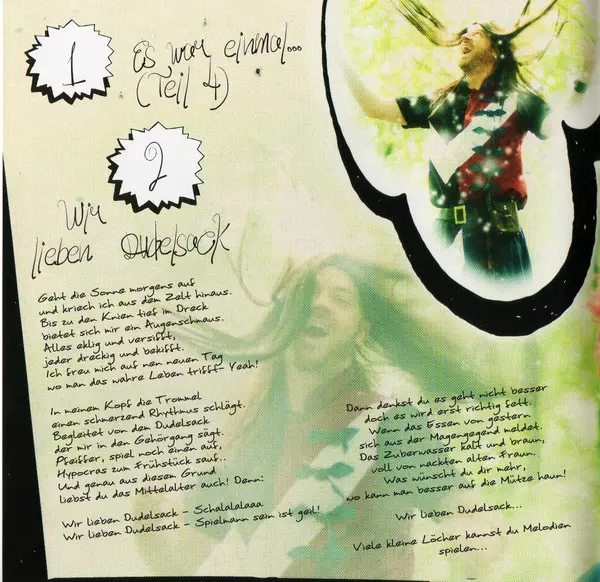 1
Es war einmal...
(Teil 4)
2
Wir
lieben Dudelsack
Geht die Sonne morgens auf
und kriech ich aus dem Zelt hinaus.
Bis zu den Knien tief im Dreck
bietet sich mir ein Augenschmaus.
Alles eklig und versifft,
jeder dreckig und bekifft.
Ich freu mich auf nen neuen Tag
wo man das wahre Leben trifft- Yeah!
In meinem Kopf die Trommel
einen schmerzend Rhythmus schlägt.
Begleitet von dem Dudelsack
der mir in den Gehörgang sägt.
Pfeiffer, spiel noch einen auf,
Hypocras zum Frühstück sauf..
Und genau aus diesem Grund
liebst du das Mittelalter auch! Denn:
Wir lieben Dudelsack - Schalalalaaa
Wir lieben Dudelsack - Spielmann sein ist geil!
Dann denkst du es geht nicht besser
doch es wird erst richtig fett.
Wenn das Essen von gestern
sich aus der Magengegend meldet.
Das Zuberwasser kalt und braun,
voll von nackten alten Fraun.
Was wünscht du dir mehr,
wo kann man besser auf die Mütze haun!
Wir lieben Dudelsack...
Viele kleine Löcher kannst du Melodien
spielen...